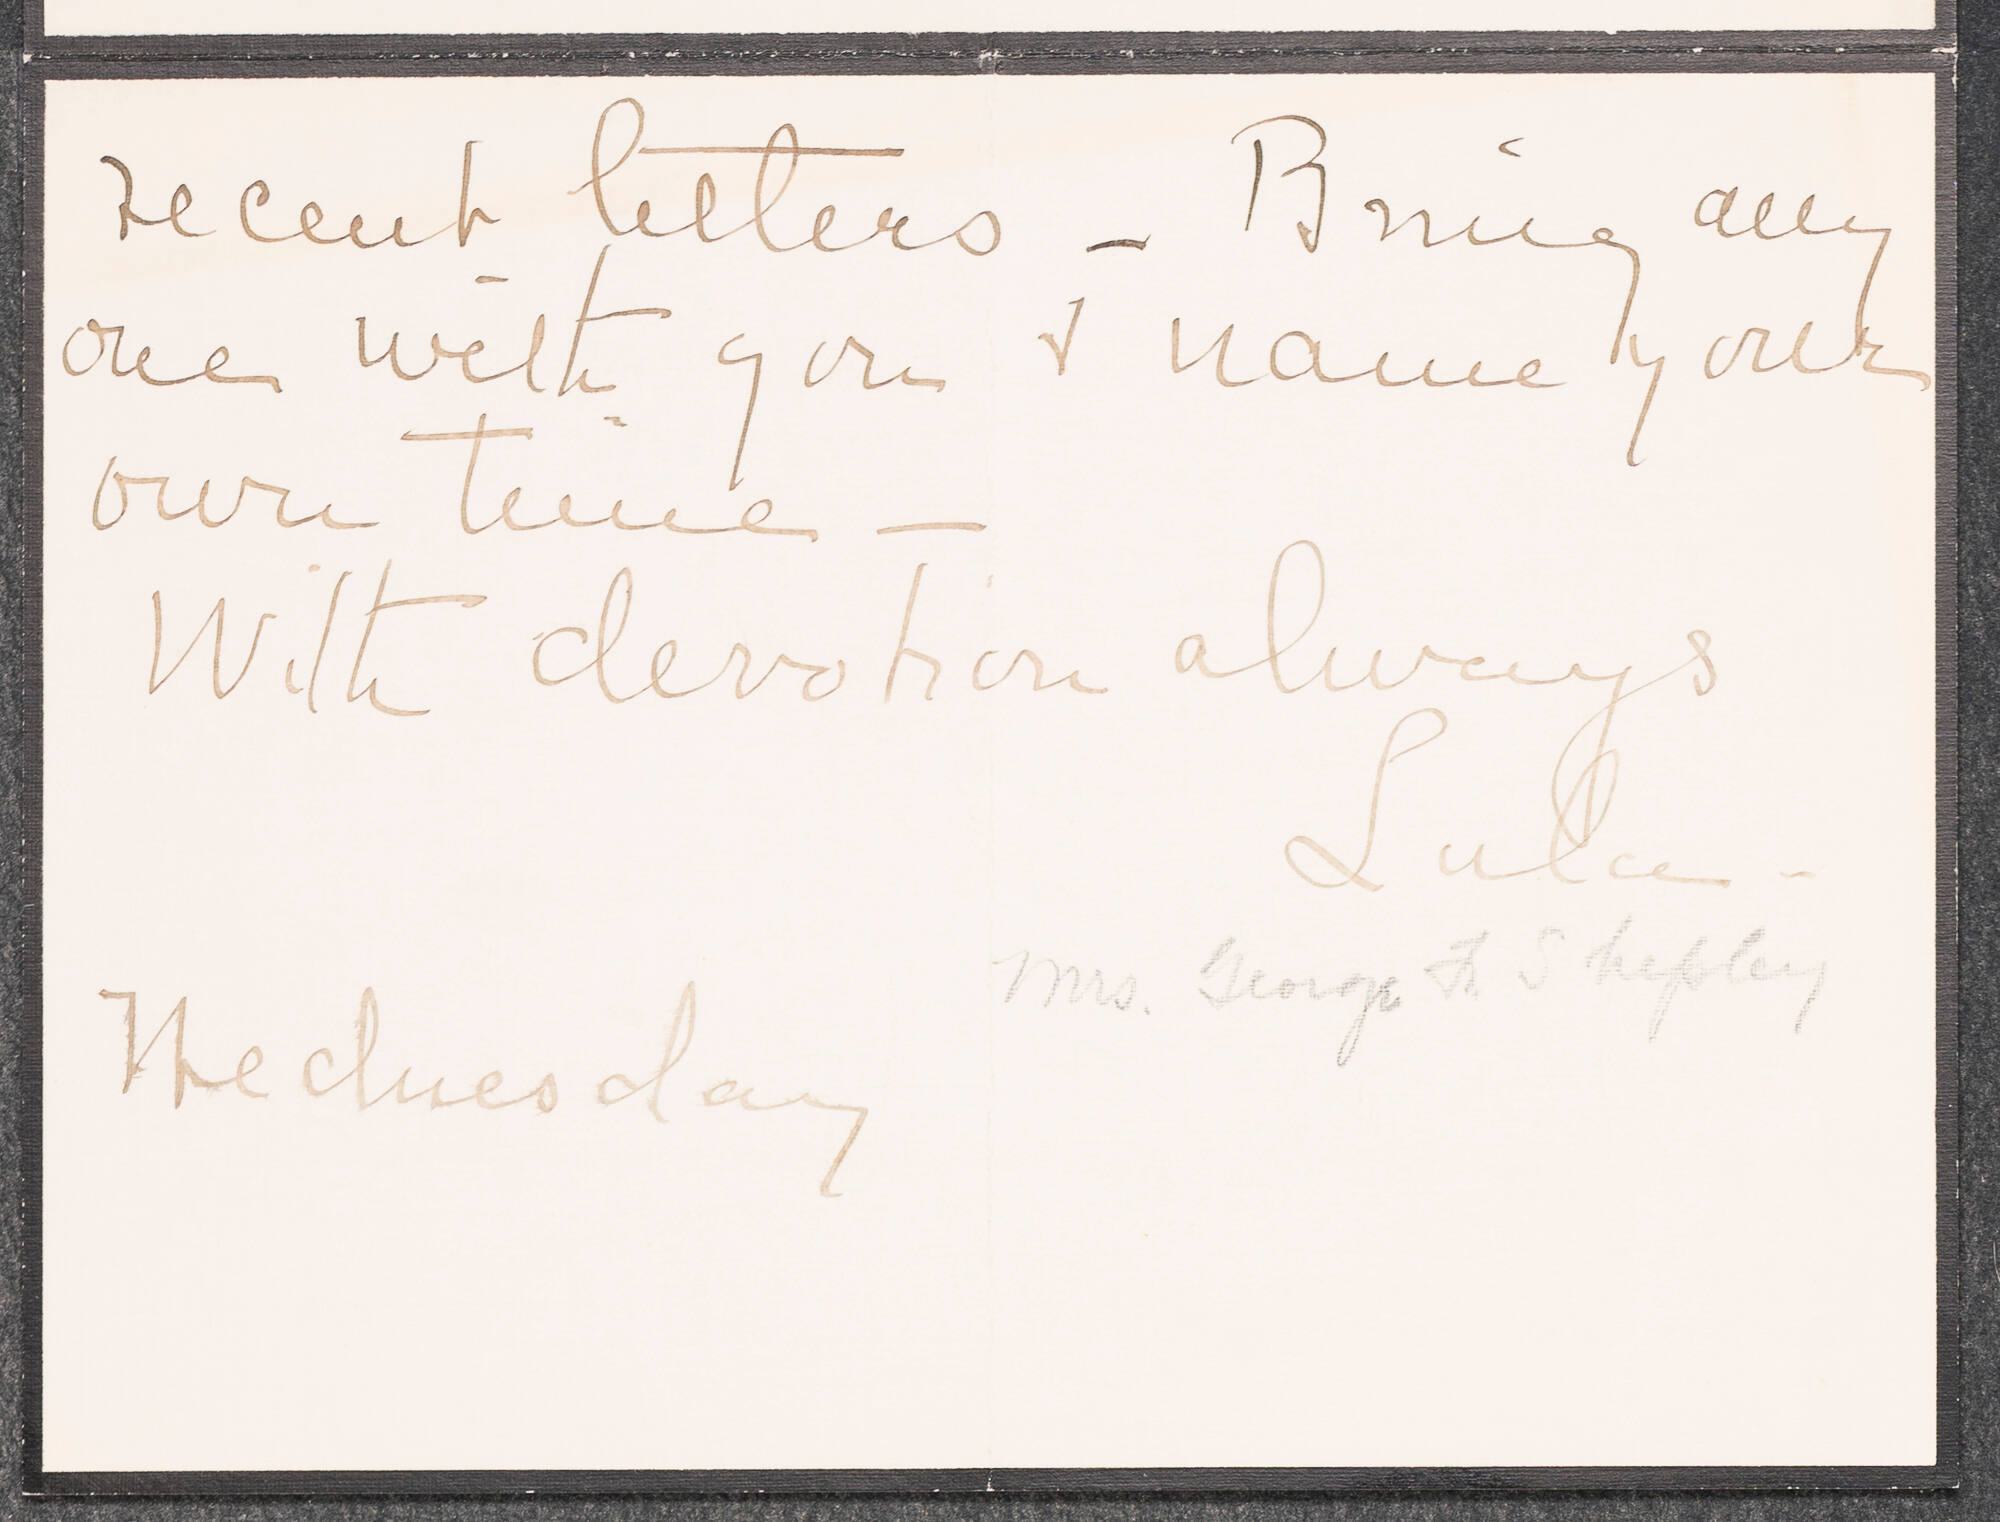 recent letters – Bring any
one with you & name your
own time –
With devotion always
Lula –
Mrs. George F. Shepley
Wednesday